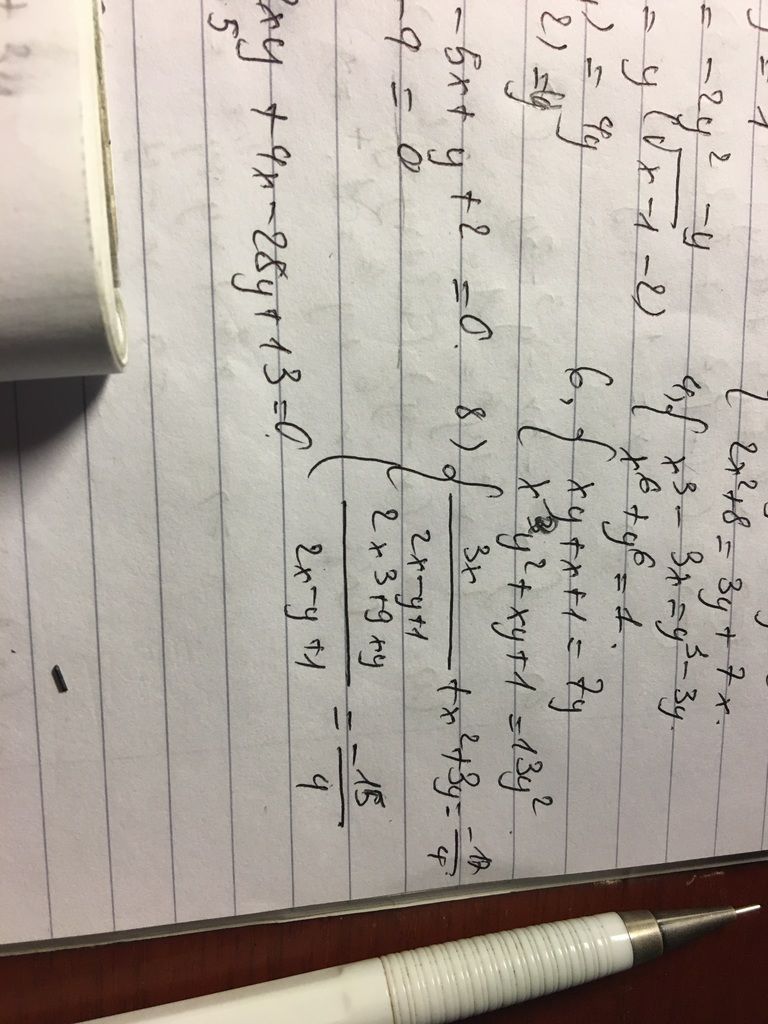 y = 1
= -2y² - y
= y (√x-1 - 2)
) = 4y
2) = y
- 5x + y + 2 = 0
- 9 = 0
2xy + 4x - 28y + 13 = 0
5y
2x² + 8 = 3y + 7x.
4, { x³ - 3x = y³ - 3y
x⁶ + y⁶ = 1
6, { xy + x + 1 = 7y
x² y² + xy + 1 = 13y²
8) { 3x / 2x - y + 1 + x² + 3y = / 4
2x3 + 9 + y / 2x - y + 1 = -15 / 4